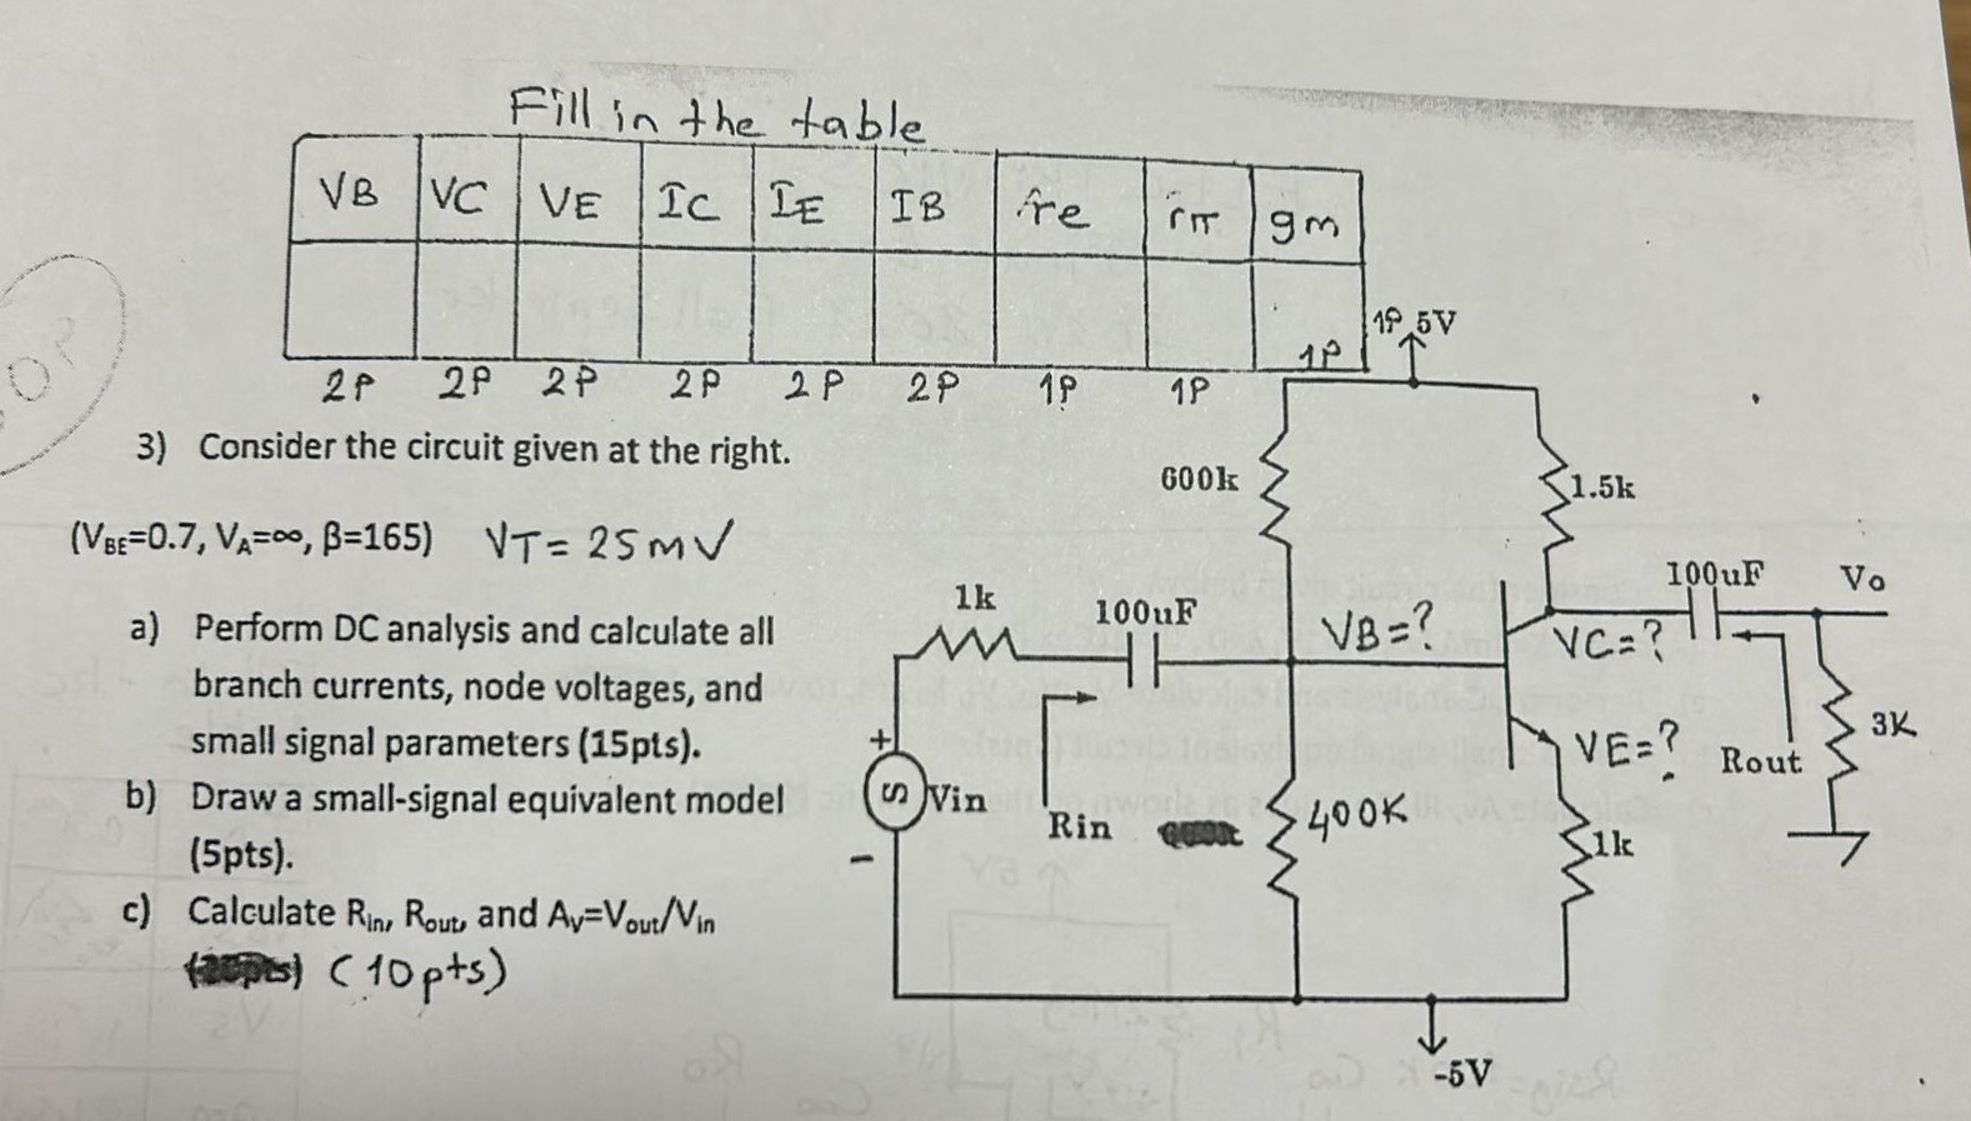 Fill in the table
VB VC VE IC IE IB re rπ gm
1P 5V
1P
2P 2P 2P 2P 2P 2P 1P 1P
3) Consider the circuit given at the right.
600k
1.5k
(VBE=0.7, VA=∞, β=165) VT = 25mV
1k
100uF
100uF
Vo
a) Perform DC analysis and calculate all
branch currents, node voltages, and
small signal parameters (15pts).
VB=?
VC=?
VE=?
Rout
3K
b) Draw a small-signal equivalent model
(5pts).
+
Vin
-
Rin
400K
1k
c) Calculate Rin, Rout, and Av=Vout/Vin
(10pts)
-5V